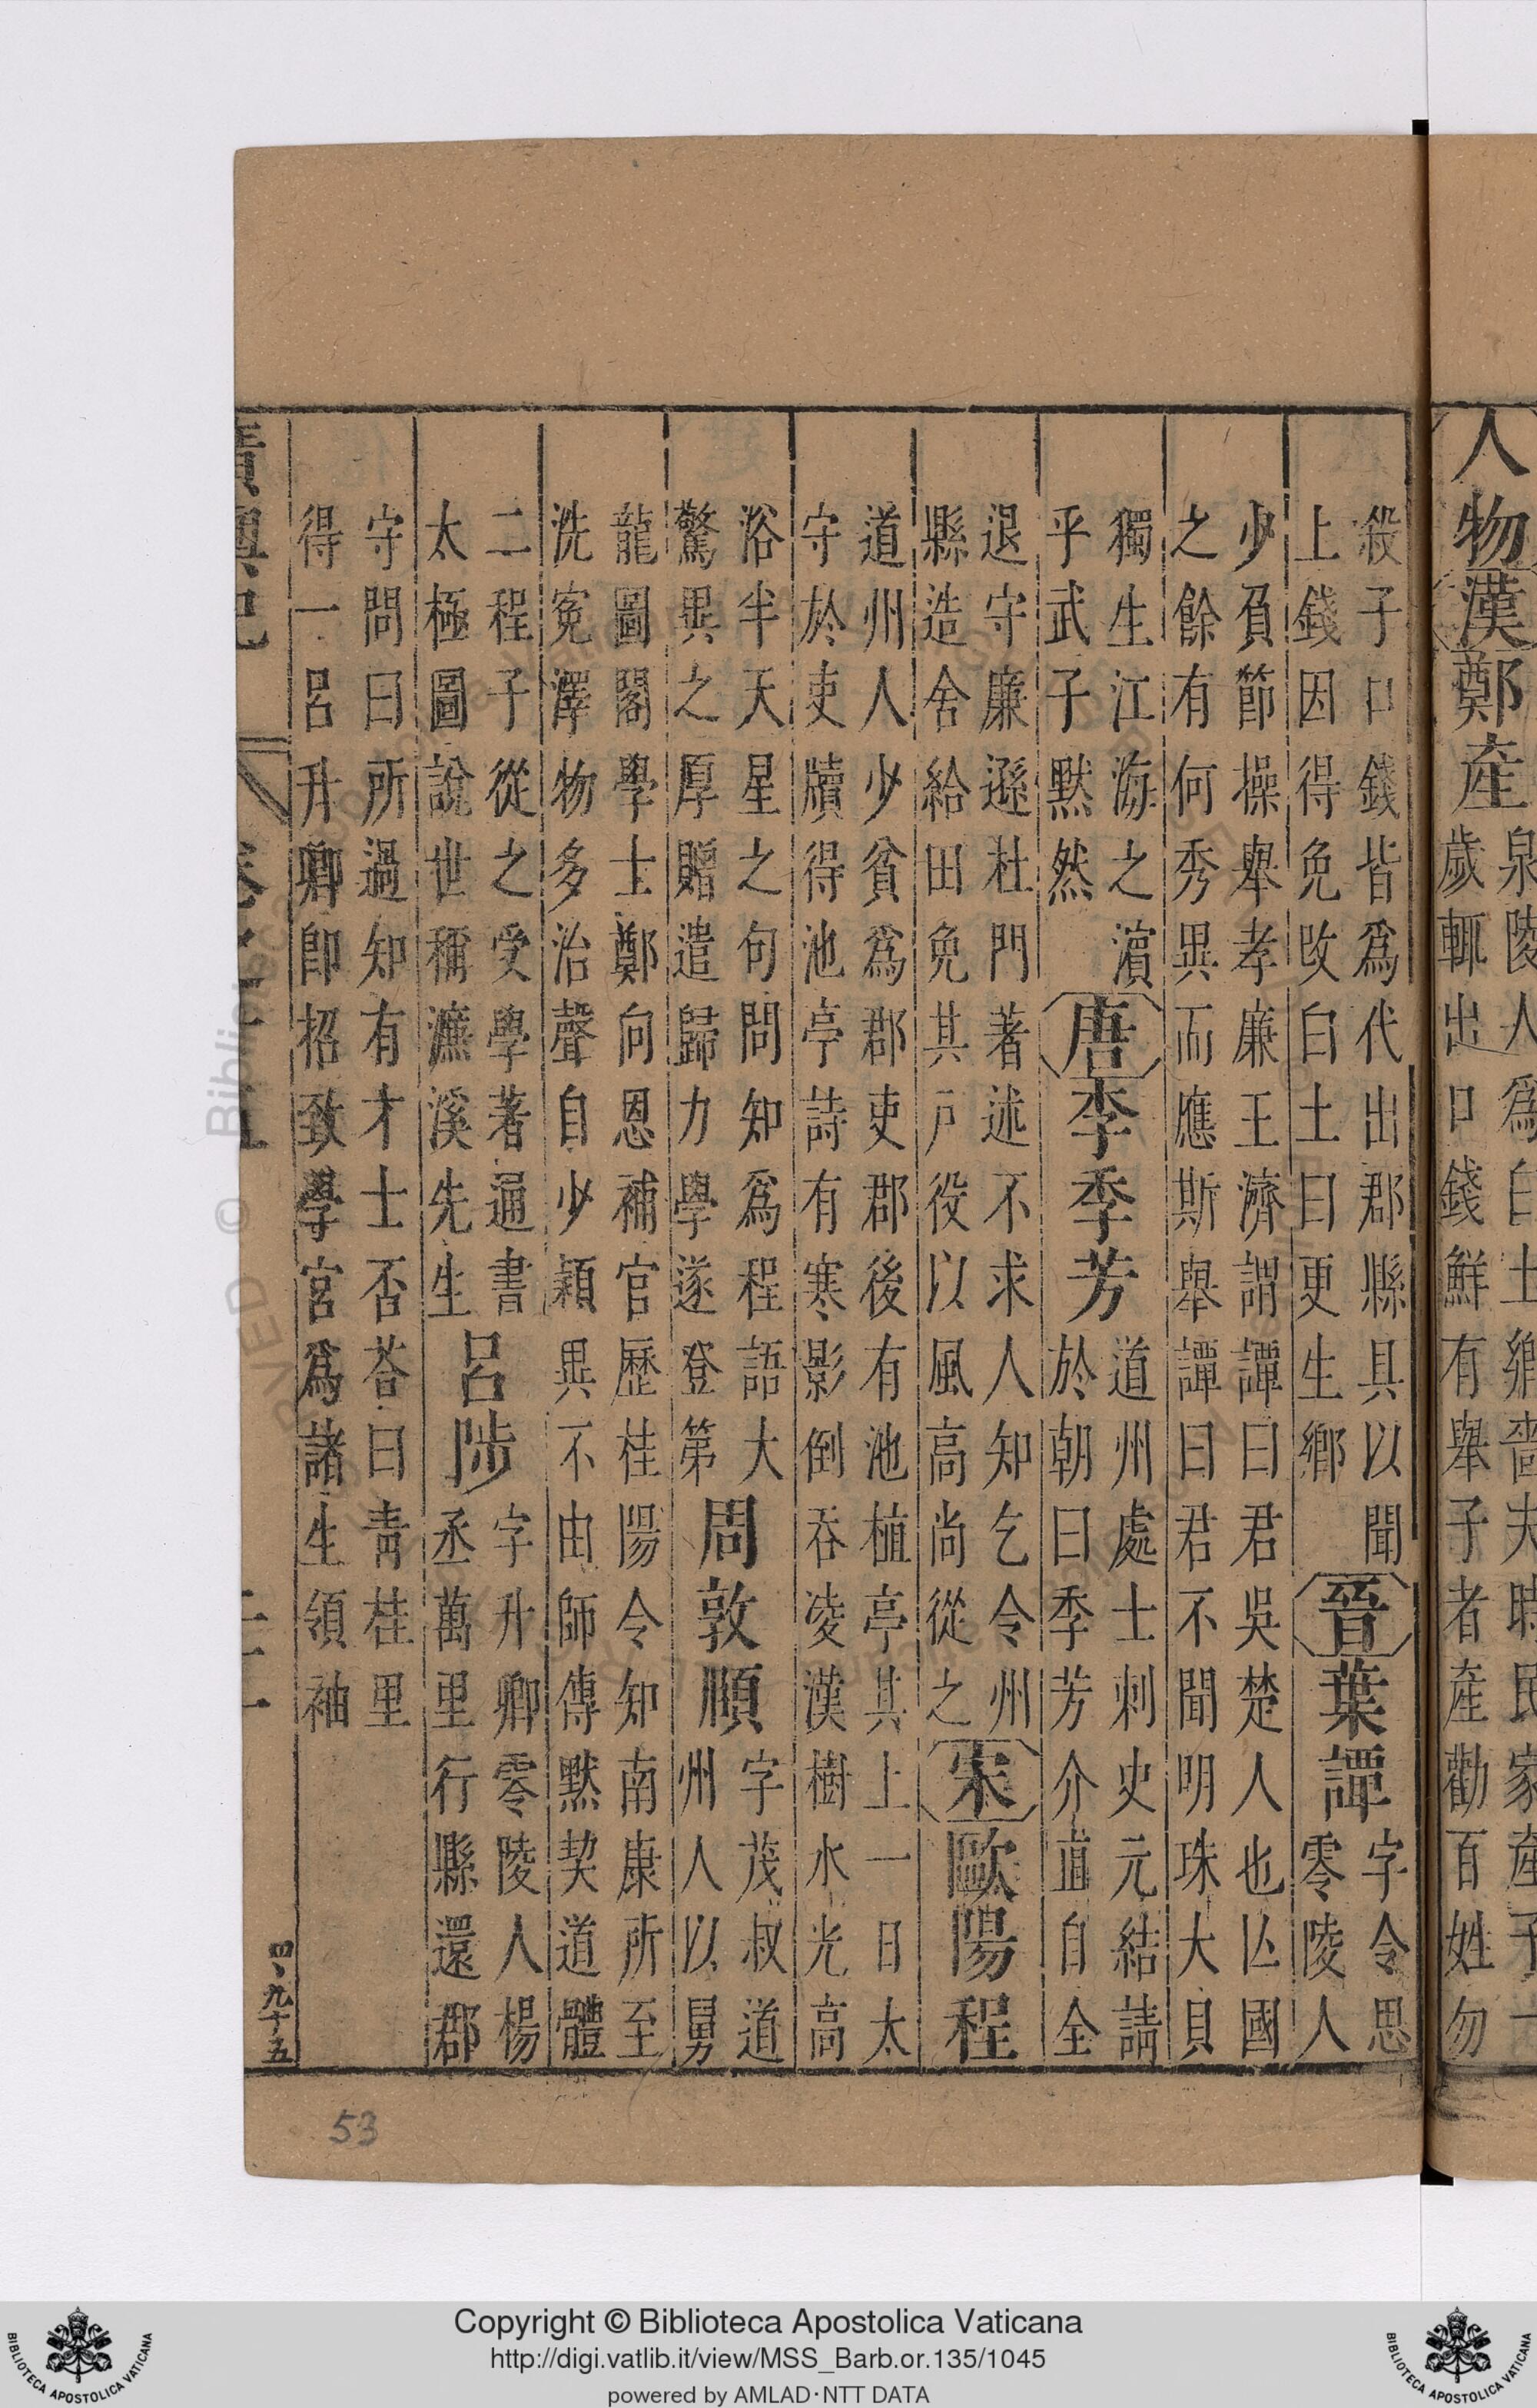 人物漢鄭產
泉陵人為白土鄉嗇夫時民家產子一
歲輒出口錢鮮有舉子者產勸百姓勿
殺子口錢皆為代出郡縣具以聞
上錢因得免改白土曰更生鄉
晉葉譚
字令思
零陵人
少負節操舉孝廉王濟謂譚曰君吳楚人也亾國
之餘有何秀異而應斯舉譚曰君不聞明珠大貝
獨生江海之濵
乎武子默然
唐李季芳
道州處士刺史元結請
於朝曰季芳介直自全
退守廉遜杜門著述不求人知乞令州
縣造舍給田免其戶役以風高尚從之
宋歐陽程
道州人少貧為郡吏郡後有池植亭其上一日太
守於吏牘得池亭詩有寒影倒吞凌漢樹水光高
浴半天星之句問知為程語大
驚異之厚贈遣歸力學遂登第
周敦順
字茂叔道
州人以舅
龍圖閣學士鄭向恩補官歷桂陽令知南康所至
洗冤澤物多治聲自少穎異不由師傳默契道體
二程子從之受學著通書
太極圖說世稱濂溪先生
呂陟
字升卿零陵人楊
丞萬里行縣還郡
守問曰所過知有才士否荅曰青桂里
得一呂升卿即招致學宮為諸生領袖
四、九十五
53
Copyright © Biblioteca Apostolica Vaticana
http://digi.vatlib.it/view/MSS_Barb.or.135/1045
powered by AMLAD·NTT DATA
BIBLIOTECA APOSTOLICA VATICANA
BIBLIOTECA APOSTOLICA VATICANA